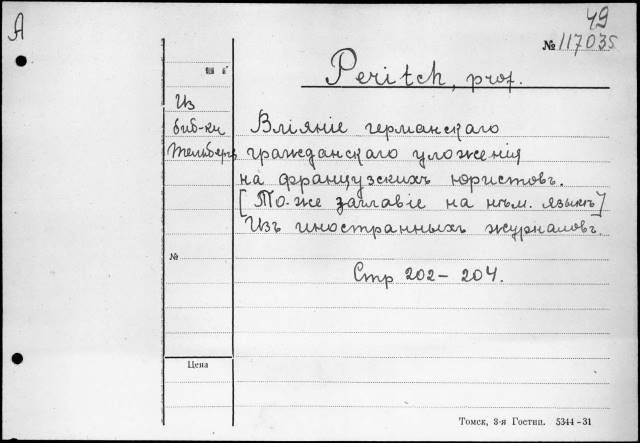 А
49
№ 117035
Peritch, prof.
Из
биб-ки
Тельберг
Вліяніе германскаго
гражданскаго уложенія
на французскихъ юристовъ.
[То-же заглавіе на нѣм. языкѣ]
Изъ иностранныхъ журналовъ.
№
Стр 202-204.
Цена
Томск, 3-я Гостип. 5344-31